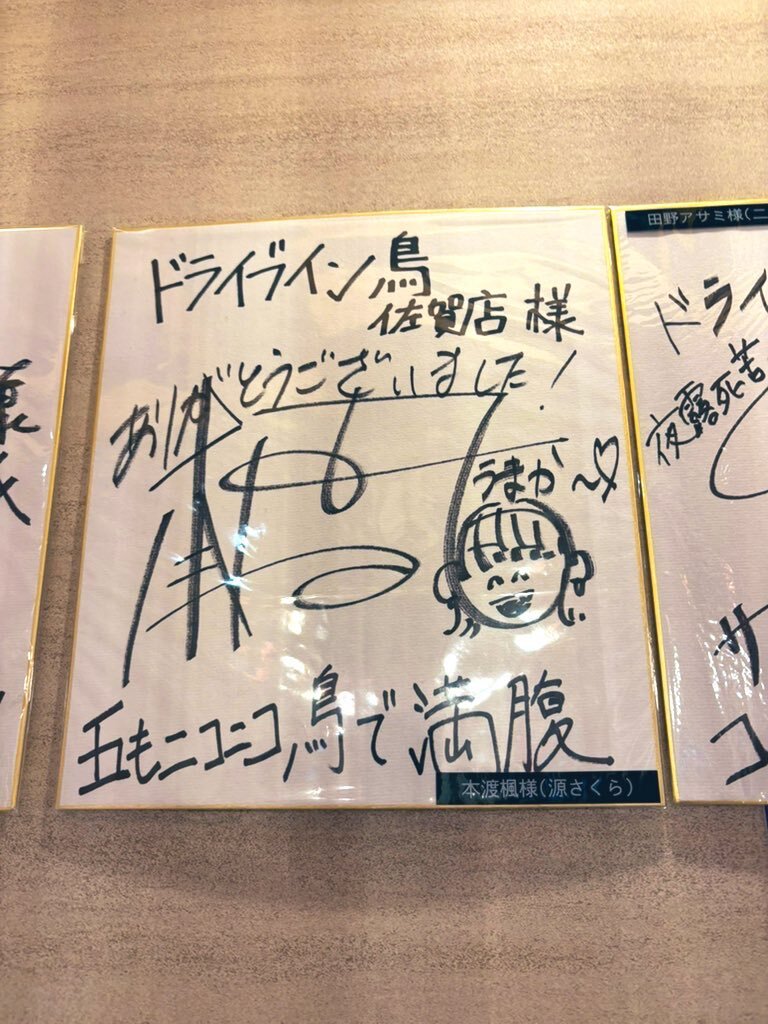 ドライブイン鳥
佐賀店 様
ありがとうございました!
うまか~♡
五もニコニコ鳥で満腹
本渡楓様(源さくら)
田野アサミ様(二
ドライ
夜露死苦
サ
コ